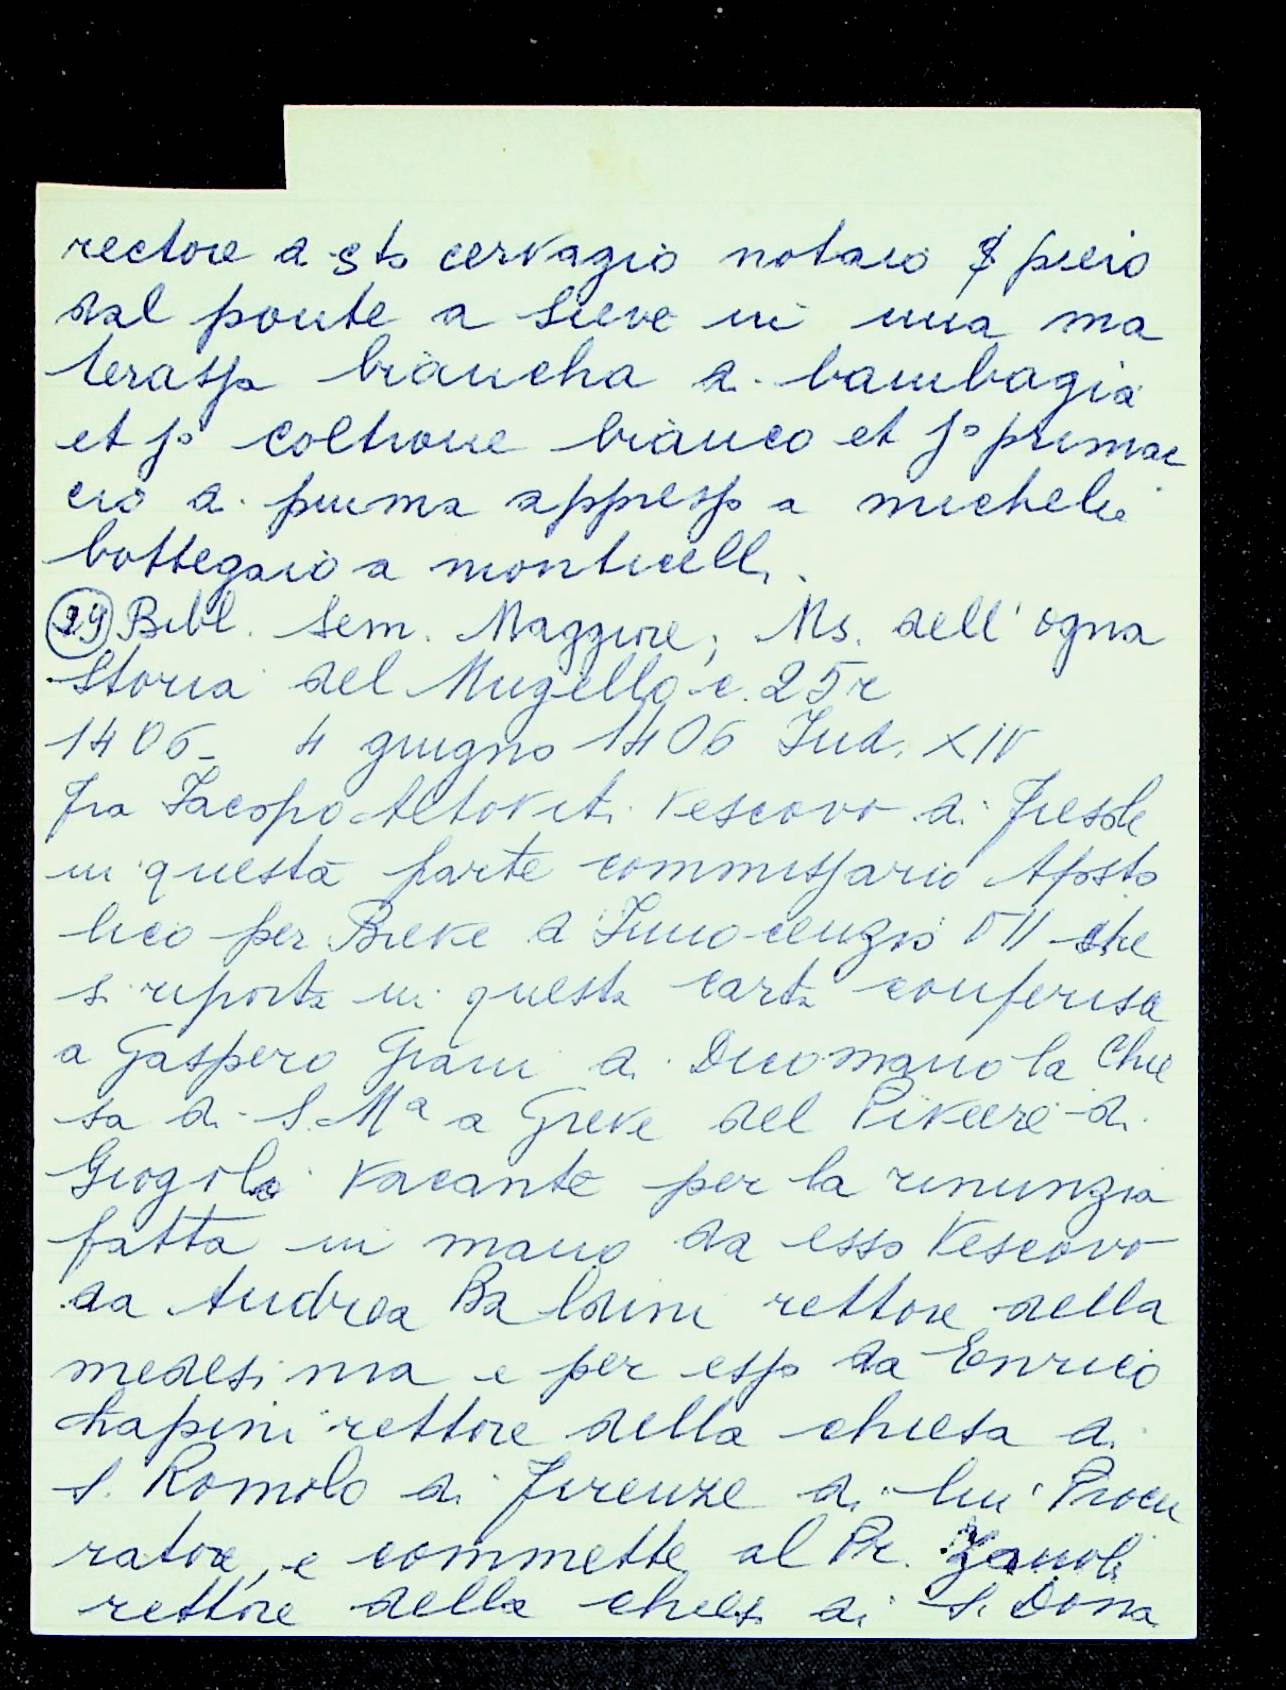 rectore di sto cervagio notaio ꝭ piero
dal ponte a Sieve in una ma
terassa biancha di bambagia
et jo coltrone bianco et jo primac
cio di piuma appresso a michele
bottegaio a monticelli.
29 Bibl. Sem. Maggiore, Ms. dell'ogna
Storia del Mugello c. 25r
1406_ 4 giugno 1406 Ind. XIV
fra Iacopo Altoviti vescovo di Fiesole
in questa parte commissario Aposto
lico per Breve di Innocenzio VII che
si riporta in questa carta conferisce
a Gaspero Giani di Dicomano la Chie
sa di S. Mª a Greve del Piviere di
Giogoli vacante per la rinunzia
fatta in mano da esso Vescovo
da Andrea Baldini rettore della
medesima e per esso da Enrico
Chapini rettore della chiesa di
S. Romolo di Firenze di lui Procu
ratore, e commette al Pr. Zanobi
rettore della chiesa di S. Dona